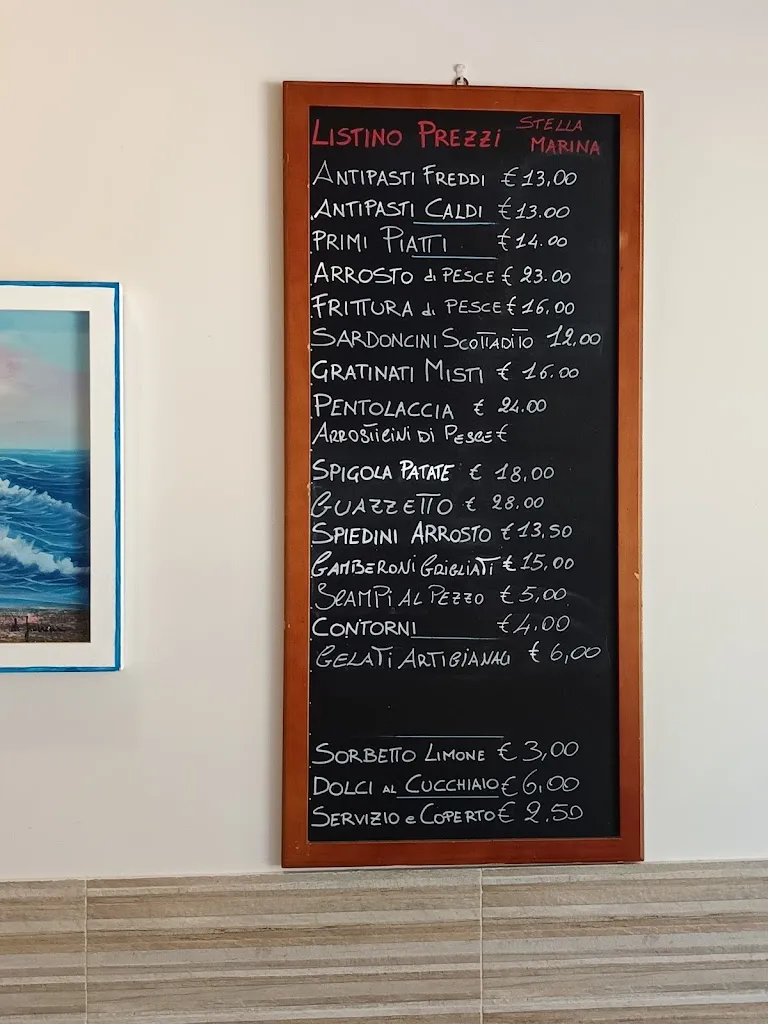 LISTINO PREZZI STELLA MARINA
ANTIPASTI FREDDI € 13,00
ANTIPASTI CALDI € 13.00
PRIMI PIATTI € 14.00
ARROSTO di PESCE € 23.00
FRITTURA di PESCE € 16,00
SARDONCINI SCOTTADITO 12,00
GRATINATI MISTI € 16.00
PENTOLACCIA € 24.00
ARROSTICINI DI PESCE €
SPIGOLA PATATE € 18,00
GUAZZETTO € 28.00
SPIEDINI ARROSTO € 13,50
GAMBERONI GRIGLIATI € 15,00
SCAMPI AL PEZZO € 5,00
CONTORNI € 4.00
GELATI ARTIGIANALI € 6,00
SORBETTO LIMONE € 3,00
DOLCI AL CUCCHIAIO € 6,00
SERVIZIO e COPERTO € 2.50